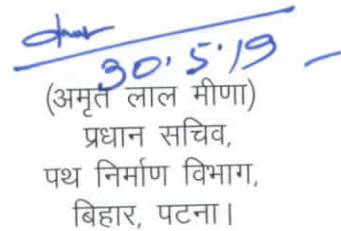 30.5.19
(अमृत लाल मीणा)
प्रधान सचिव,
पथ निर्माण विभाग,
बिहार, पटना।